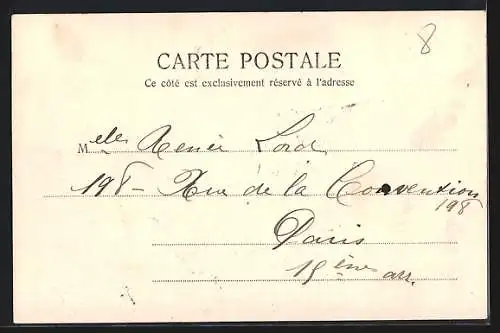 8
CARTE POSTALE
Ce côté est exclusivement réservé à l'adresse
Melle Renée
198 - Rue de la Convention
198
Paris
15ème arr.